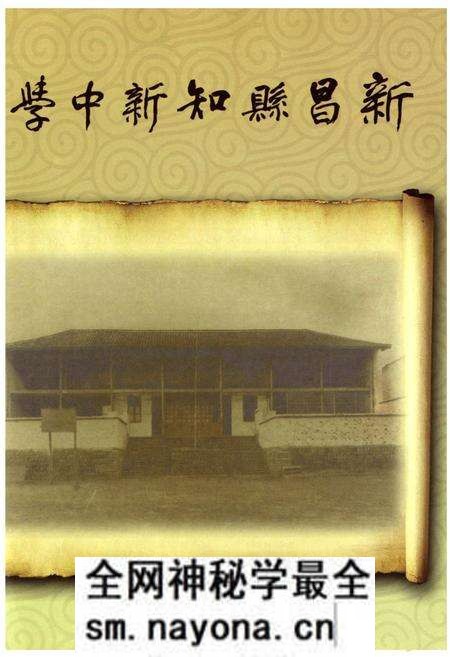 新昌縣知新中學
全网神秘学最全
sm.nayona.cn